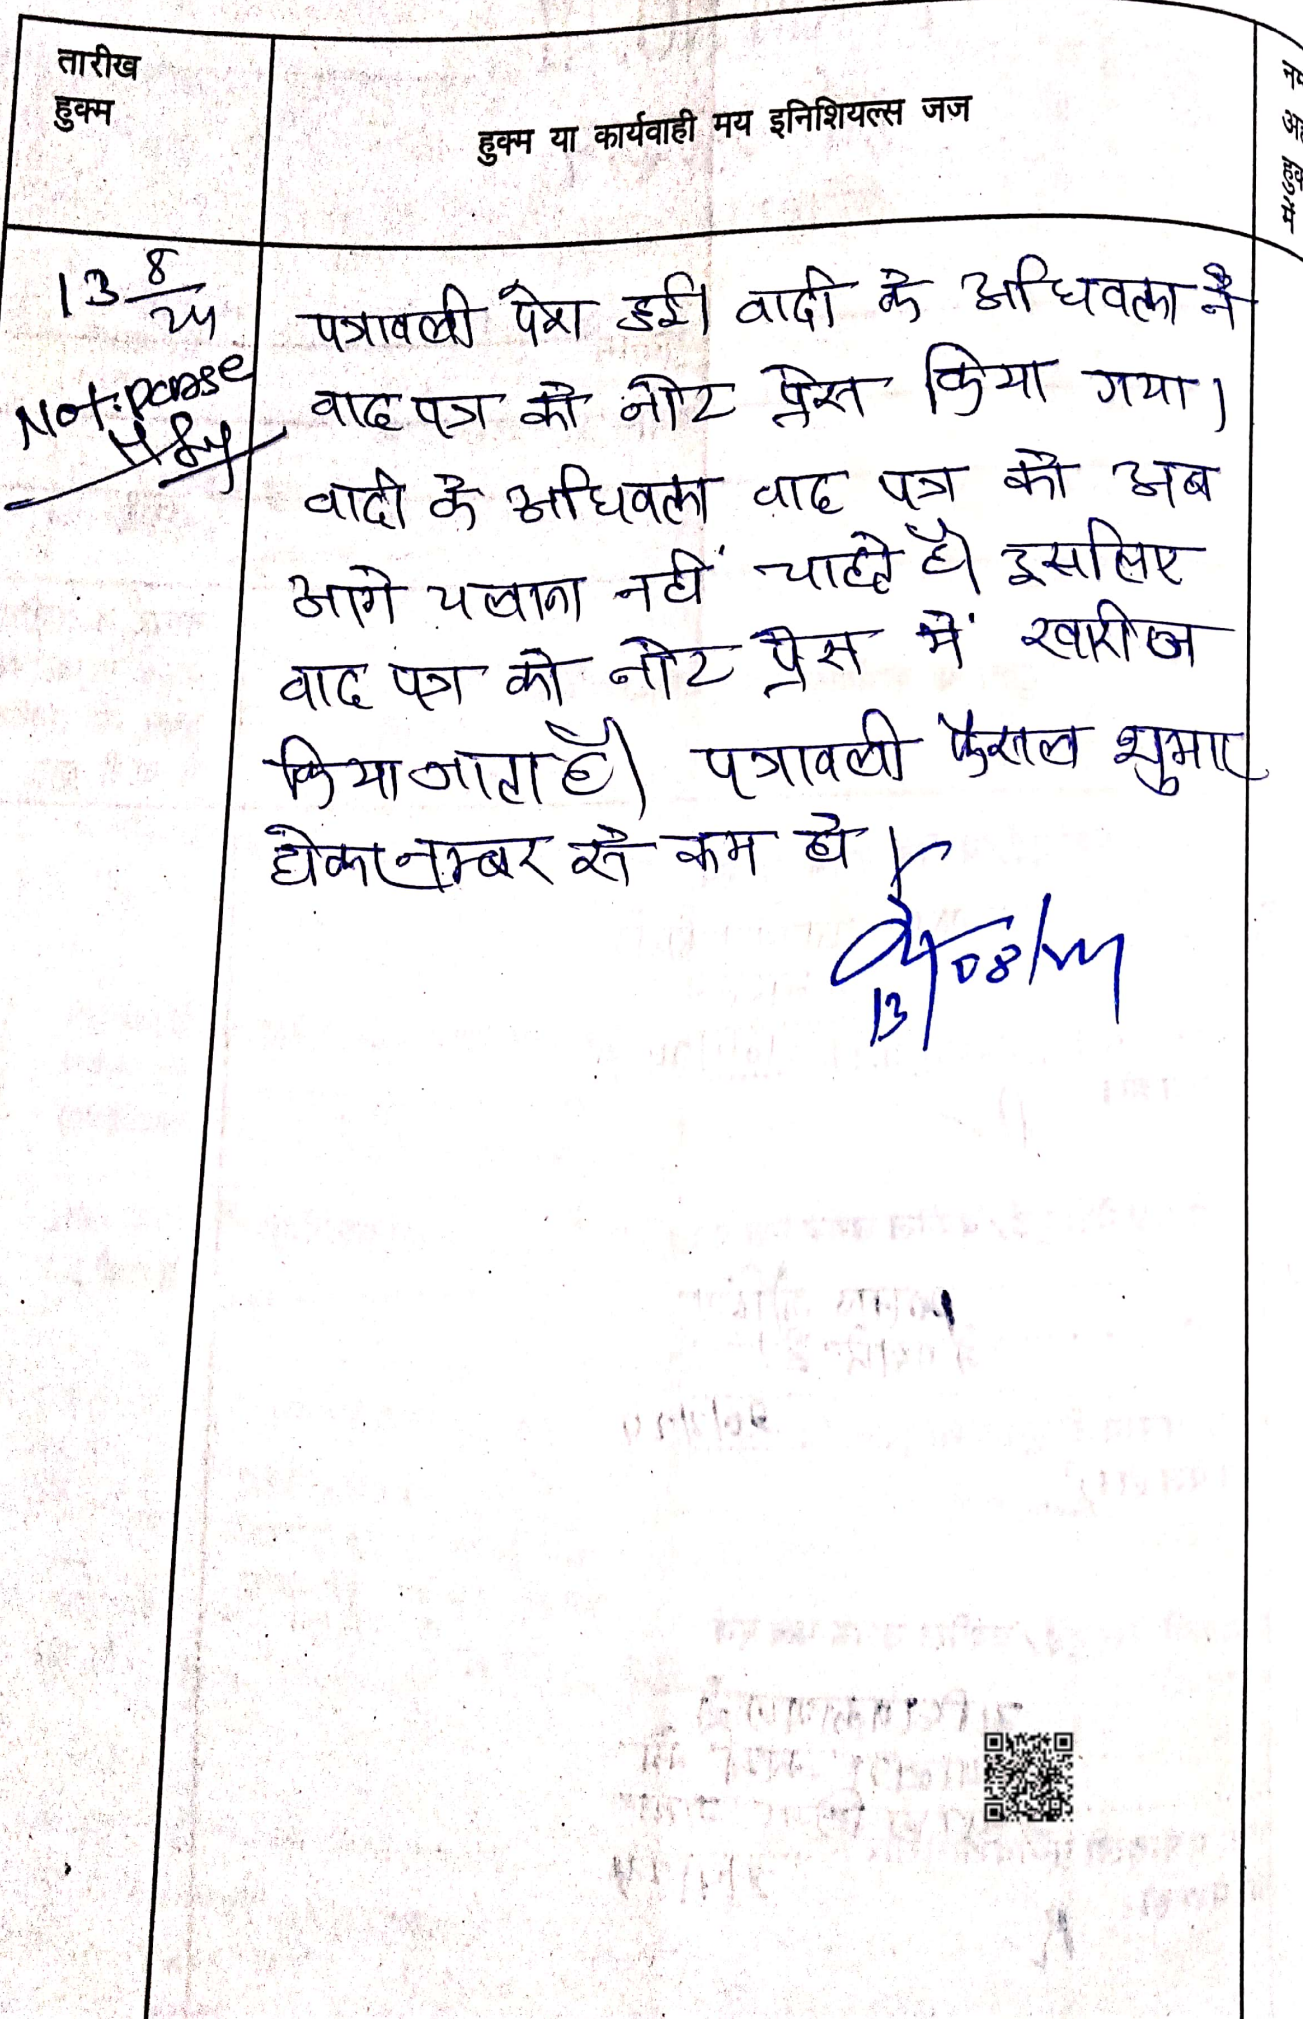 तारीख
हुक्म
हुक्म या कार्यवाही मय इनिशियल्स जज
हुक्म
में
13 8/24
Not: passe
पत्रावली पेश हुई। वादी के अधिवक्ता ने
वाद पत्र को नोट प्रेस किया गया।
वादी के अधिवक्ता वाद पत्र को अब
आगे चलाना नहीं चाहते है। इसलिए
वाद पत्र को नोट प्रेस में खारीज
किया जाता है। पत्रावली फैसल शुमार
होकर नम्बर से कम हो।
13/08/24